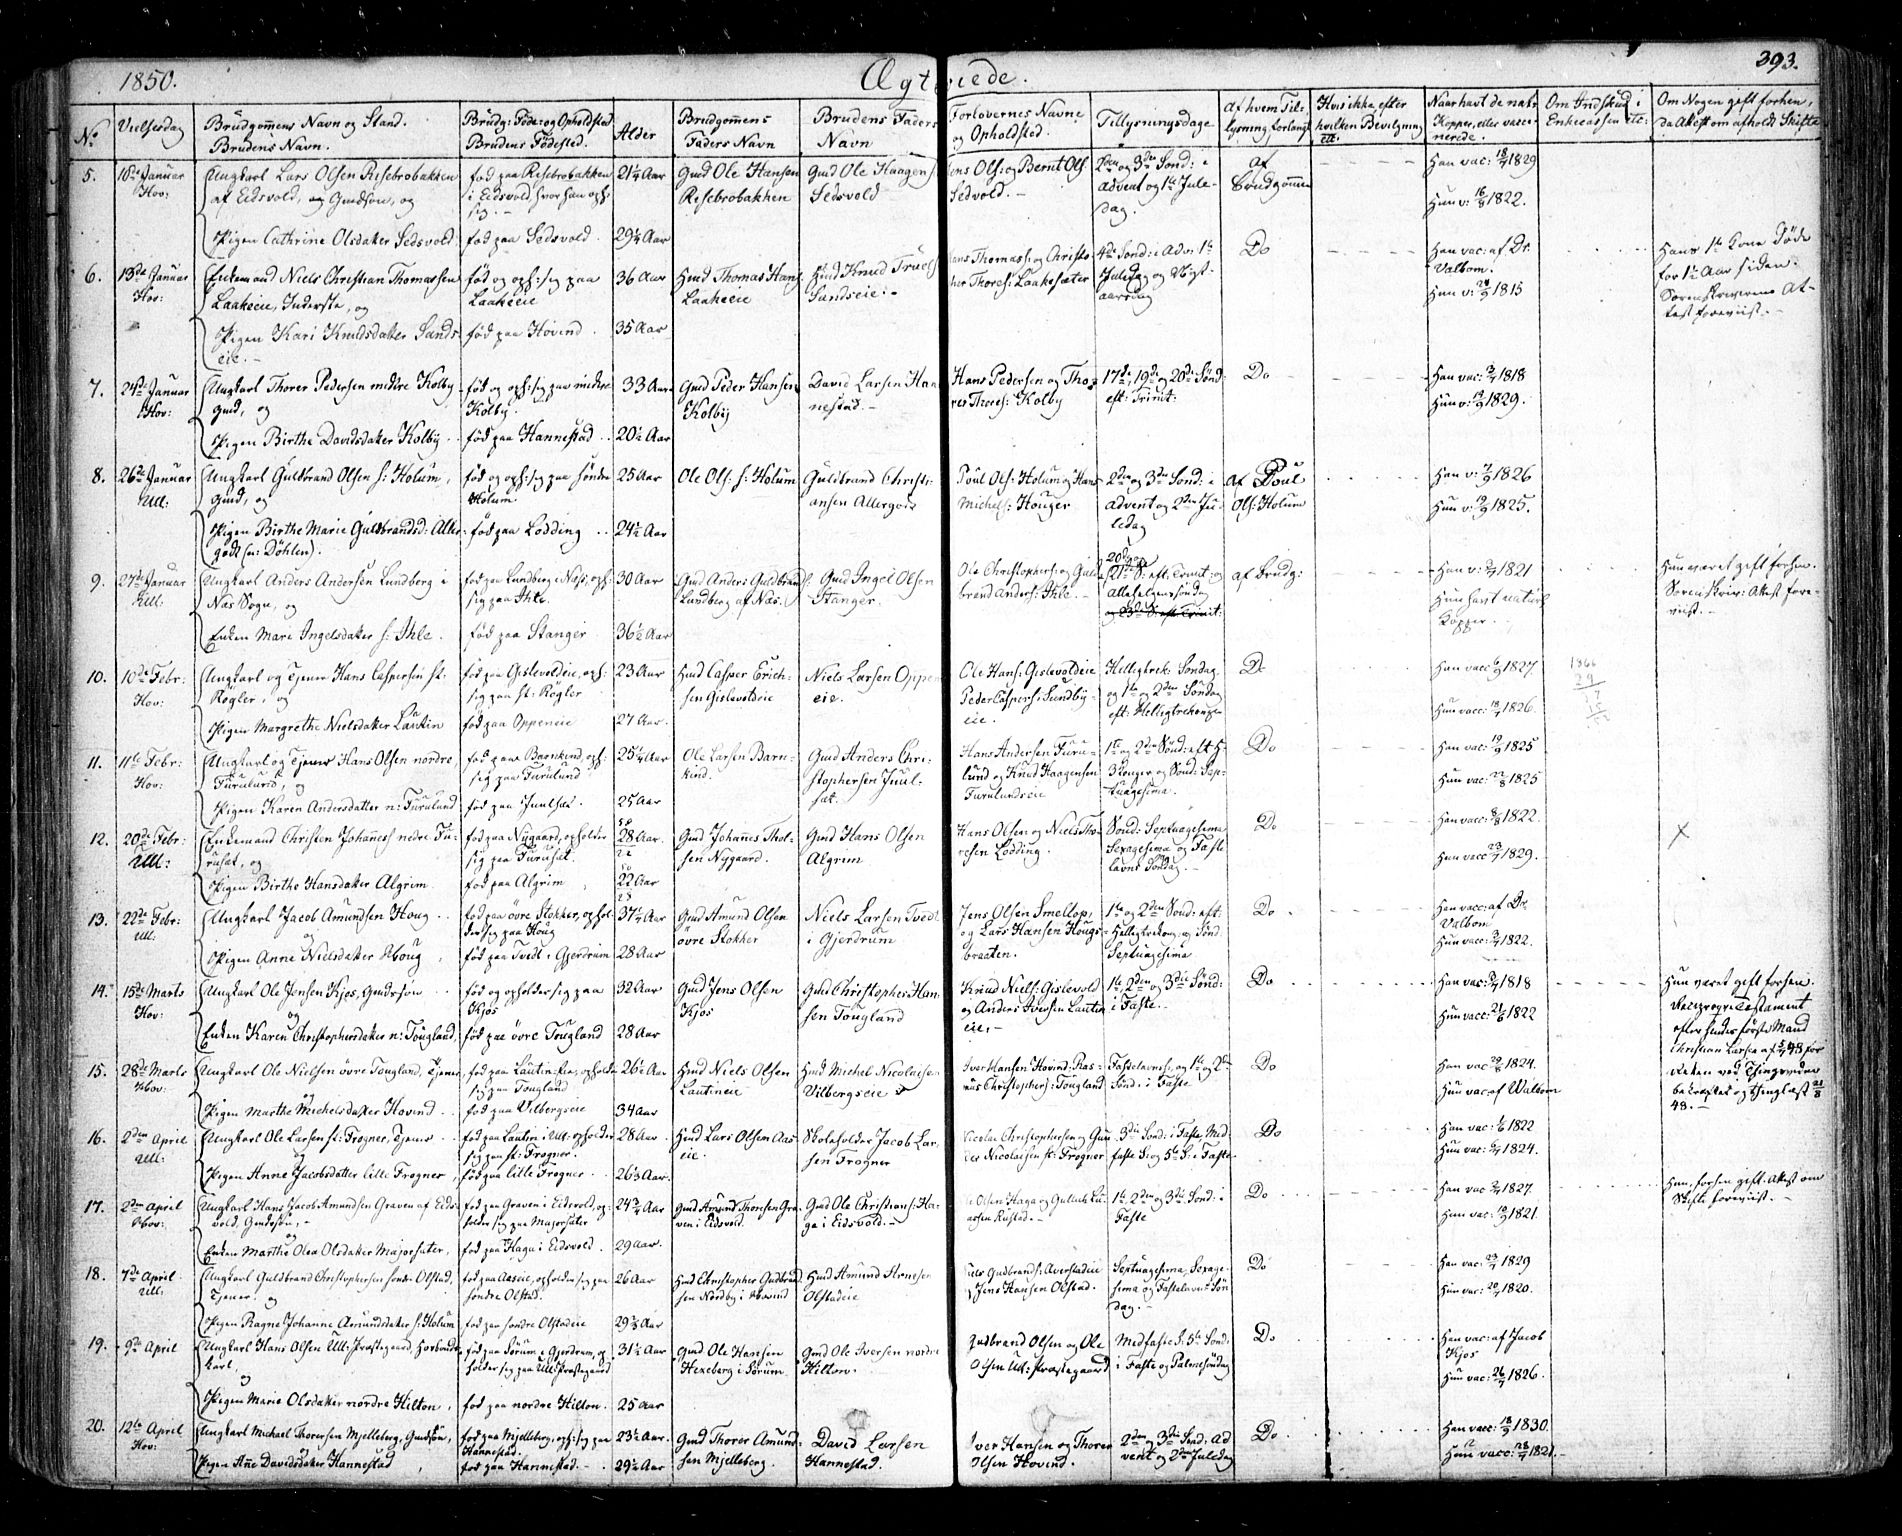 1850.
Ægteviede.
393.
No
Vielsesdag
Brudgommens Navn og Stand.
Brudens Navn.
Brudg: Føde- og Opholdsted
Brudens Fødested.
Alder
Brudgommens
Faders Navn
Brudens Faders
Navn
Forlovernes Navne
og Opholdsted.
Tillysningsdage
Af hvem Til-
lysning forlangt
Hvis ikke, efter
hvilken Bevilgning
etc.
Naar havt de nat:
Kopper, eller vacci-
nerede.
Om Indskud i
Enkecassen etc:
Om Nogen gift forhen,
da Attest om afholdt Skifte
5.
16de Januar
Hov:
Ungkarl Lars Olsen Risebrobakken
af Eidsvold, og Gmdsøn, og
Pigen Cathrine Olsdatter Sedsvold
fød paa Risebrobakken
i Eidsvold, hvor han oph:
sig. -
fød paa Sedsvold.
21 1/4 Aar
29 1/4 Aar
Gmd Ole Hansen
Risebrobakken
Gmd Ole Haagens:
Sedsvold
Jens Ols: og Bernt Ols:
Sedvold. -
2den og 3de Sønd: i
Advent og 1ste Jule-
dag.
af
Brudgommen
Han vac: 18/7 1829
Hun v: 16/8 1822.
6.
13de Januar
Hov:
Enkemand Niels Christian Thomassen
Laakeeie, Inderste, og
Pigen Kari Knudsdatter Sands-
eie. -
fød og oph: sig paa
Laakeeie
fød paa Hovind.
36 Aar
35 Aar
Hmd Thomas Hans:
Laakeeie
Hmd Knud Truels:
Sandseie. -
Hans Thomas: og Christo
her Thores: Laakesæter
4de Sønd: i Adv: 1ste
Juledag og Nyt-
aarsdag
Do
Han vac: af Dr.
Valbom.
Hun v: 1815
Hans 1ste Kone døde
for 1 1/2 Aar siden.
Sorenskriverens At-
test foreviist. -
7.
24de Januar
Hov:
Ungkarl Thorer Pedersen midtre Kolby
Gmd, og
Pigen Birthe Davidsdatter Kolby
fød og oph: sig paa midtre
Kolby.
fød paa Hannestad
33 Aar
20 1/2 Aar
Gmd Peder Hansen
Kolby
David Larsen Han
nestad. -
Hans Pedersen og Tho
res Thores: Kolby
17de, 19de og 20de Sønd:
eft: Trinit:
Do
Han vac: 1818
Hun v: 1829.
8.
26de Januar
Ull:
Ungkarl Guldbrand Olsen s: Holum,
Gmd, og
Pigen Birthe Marie Guldbrandsd: Aller-
godt (n: Døhlen).
fød og oph: sig paa søndre
Holum.
fød paa Lodding
25 Aar
24 1/2 Aar
Ole Ols: s: Holum
Guldbrand Christi-
ansen Allergodt
Poul Ols: Holum og Hans
Michels: Houger
2den og 3die Sønd: i
Advent og 2den Ju-
ledag
af Poul
Ols: Holum
Han v: 1826
Hun v: 1825.
9.
27de Januar
Ull:
Ungkarl Anders Andersen Lundberg i
Næs Sogn, og
Enken Mari Ingelsdatter s: Ihle.
fød paa Lundberg i Næs, oph:
sig paa Ihle.
fød paa Stanger
30 Aar
36 1/2 Aar
Gmd Anders Guldbrands:
Lundberg af Næs.
Gmd Ingel Olsen
Stanger.
Ole Christophers: og Guld
brand Anders: Ihle. -
20de og
21de S: eft: Trinit: og
Allehelgensøndag
og 23de S: eft: Trinit:
af Brudg:
Han v: 1821
Hun havt naturl
Kopper.
Hun været gift forhen.
Sorenskriv: Attest fore-
viist. -
10.
10de Febr:
Hov:
Ungkarl og Tjener Hans Caspersen st:
Røgler, og
Pigen Margrethe Nielsdatter Lautin
fød paa Gislevoldeie, oph:
sig paa st: Røgler
fød paa Oppeneie
23 Aar
27 Aar.
Hmd Casper Erich-
sen Gislevoldeie
Niels Larsen Oppen
eie.
Ole Hans: Gislevoldeie
Peder Caspers: Sundby-
eie.
Helligtrek: Søndag
og 1ste og 2den Søndag
eft: Helligtrekonger
Do
Han vacc: 1827.
Hun vacc: 1826.
1866
29
11.
11te Febr:
Hov:
Ungkarl og Tjener Hans Olsen nordre
Furulund, og
Pigen Karen Andersdatter n: Furulund
fød paa Barnkind, oph:
sig paa Furulund
fød paa Juulsæt.
25 1/4 Aar
25 Aar
Ole Larsen Barn-
kind.
Gmd Anders Chri-
stophersen Juul-
sæt.
Hans Andersen Furu-
lund og Knud Haagensen
Furulundeie
1ste og 2den Sønd: eft H:
3 Konger og Sønd: Sep-
tuagesima.
Do
Han vac: 1825
Hun vac: 1825
12.
20de Febr:
Ull:
Enkemand Christen Johannes: nedre Fu-
ruset, og
Pigen Birthe Hansdatter Algrim
fød paa Nygaard, opholder
sig paa Furuset.
fød paa Algrim
28 Aar.
22 Aar
Gmd Johannes Thol-
sen Nygaard.
Gmd Hans Olsen
Algrim
Hans Olsen og Niels Tho-
resen Lodding.
Sønd: Septuagesima
Sexagesima og Faste
lavns Søndag. -
Do
Han vacc: 1822.
Hun vacc 1829.
X
13.
22de Febr:
Ull:
Ungkarl Jacob Amundsen Houg
og
Pigen Anne Nielsdatter Houg
fød paa øvre Stokker, ophol-
der sig paa Houg
fød paa Tvedt i Gjerdrum
37 1/4 Aar
28 Aar
Gmd Amund Olsen
øvre Stokker
Niels Larsen Tvedt
i Gjerdrum
Jens Olsen Smellop,
og Lars Hansen Hougs-
braaten.
1ste og 2den Sønd: eft:
Helligtrekong: og Sønd
Septuagesima
Do
Han vacc: af Dr.
Valbom
Hun vacc: 1822.
14.
15de Marts
Hov:
Ungkarl Ole Jensen Kjos, Gmdssøn
og
Enken Karen Christophersdatter n: Tougland
fød og opholder sig paa
Kjos
fød paa øvre Tougland
32 Aar
28 Aar
Gmd Jens Olsen
Kjos
Gmd Christopher Han-
sen Tougland
Knud Niels: Gislevold
og Anders Iversen Lautin
eie. -
1ste, 2den og 3die Sønd:
i Faste.
Do
Han vac: 1818
Hun vacc: 1822
Hun været gift forhen.
Reciproqve Testament
efter hendes første Mand
Christian Larsen af 48 for
Retten ved Thingsviden
bekræftet og thinglæst 21/8
48. -
15.
28de Marts
Hov:
Ungkarl Ole Nielsen øvre Tougland, Tjener,
og
Pigen Marthe Michelsdatter Hovind
fød paa Lautin-eie, opholder
sig paa Tougland
fød paa Vilbergseie
26 1/2 Aar
34 Aar
Hmd Niels Olsen
Lautineie
Hmd Michel Nicolaisen
Vilbergseie
Iver Hansen Hovind, Ras-
mus Christophers: Tougland
Fastelavns:, og 1ste og 2den
Sønd: i Faste
Do
Han vac 1824.
Hun vac: af Walbom
16.
2den April
Ull:
Ungkarl Ole Larsen st: Frogner, Tjener
og
Pigen Anne Jacobsdatter lille Frogner
fød paa Lautin i Ull: opholder
sig paa st: Frogner.
fød paa lille Frogner
28 Aar
26 1/2 Aar.
Hmd Lars Olsen Aas-
eie.
Skoleholder Jacob Lar-
sen Frogner
Nicolai Christophersen og Gun
der Nicolaisen st: Frogner
3die Sønd: i Faste, Mid-
faste S. og 5te S: i Faste
Do
Han vac: 1822
Hun vac: 1824.
17.
2den April
Hov:
Ungkarl Hans Jacob Amundsen Graven af Eids-
vold, Gmdssøn, -
og
Enken Marthe Olea Olsdatter Majorsæter,
fød paa Graven i Eidsvold, op-
holder sig paa Majorsæter
fød paa Haga i Eidsvold.
24 3/4 Aar
29 Aar.
Gmd Amund Thoresen Gra
ven i Eidsvold
Gmd Ole Christians: Ha-
ga i Eidsvold. -
Olsen Haga og Gulbrik Lu
arsen Rustad. -
1ste, 2den og 3die Sønd: i
Faste
Do
Han vac 1827.
Hun vac: 1821.
Hun, forhen gift. Attest om
Skifte foreviist. -
18.
7de April
Ull:
Ungkarl Guldbrand Christophersen søndre Olstad,
Tjener, og
Pigen Ragne Johanne Amundsdatter s: Holum
fød paa Aaseie, opholder sig paa
søndre Olstad.
fød paa søndre Olstadeie
26 Aar
29 1/2 Aar
Hmd Christopher Gudbrand
sen Nordby i Hovind
Hmd Amund Arnesen
Olstadeie
Gudbrands: Averstadeie
Jens Hansen Olstad.
Septuagesima, Sexage-
sima og Fastelavns Søn
dag. -
Do
Han vac: 1829
Hun vac: 1820.
19.
9de April
Ungkarl Hans Olsen Ull: Præstegaard, Forbruds-
karl,
og
Pigen Marie Olsdatter nordre Hilton,
fød paa Sørum i Gjerdrum, op-
holder sig paa Ull: Præstegaard
fød paa nordre Hilton.
31 1/2 Aar
25 Aar
Gmd Ole Hansen
Hexeberg i Sørum.
Gmd Ole Iversen nordre
Hilton.
Gudbrand Olsen og Ole
Olsen Ull: Præstegaard
Midfaste S. 5te Sønd:
i Faste og Palmesøndag
Do
Han vac: af Jacob
Kjos
Hun vac: 1826.
20.
12te April
Hov:
Ungkarl Michael Thoresen Mjelleberg, Gmdsøn,
og
Pigen Ane Davidsdatter Hannestad
fød paa Mjelleberg, oph: sig paa
Hannestad.
fød paa Hannestad. -
23 1/2 Aar.
29 1/2 Aar
Gmd Thorer Amund-
sen Mjelleberg.
David Larsen
Hannestad.
Iver Hansen og Thorer
Olsen Hovind.
2den og 3die Sønd: Ad
vent og 2den Juledag
Do
Han vacc: 18/9 1830.
Hun vacc: 1821.